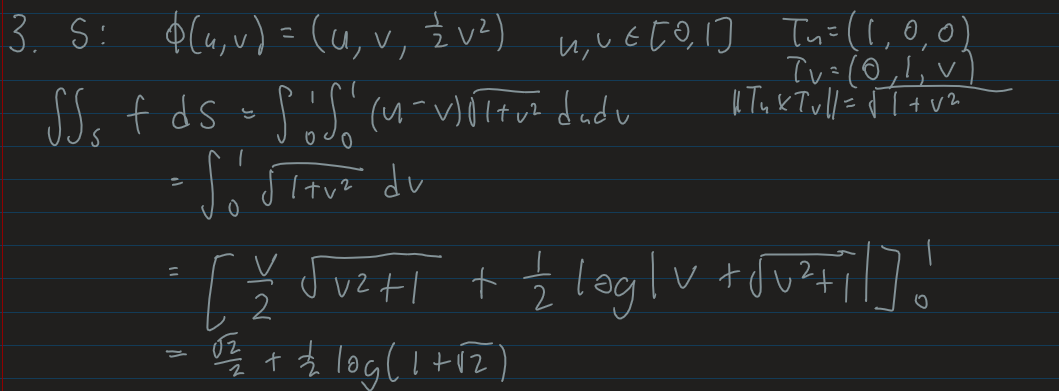 3. S: ϕ(u,v) = (u, v, ½ v²) u,v ∈ [0,1] Tu = (1, 0, 0)
Tv = (0, 1, v)
∬_S f dS = ∫₀¹∫₀¹ (u-v)√(1+v²) du dv ‖Tu × Tv‖ = √(1+v²)
= ∫₀¹ √(1+v²) dv
= [ v/2 √(v²+1) + ½ log|v + √(v²+1)| ]₀¹
= √2/2 + ½ log(1+√2)